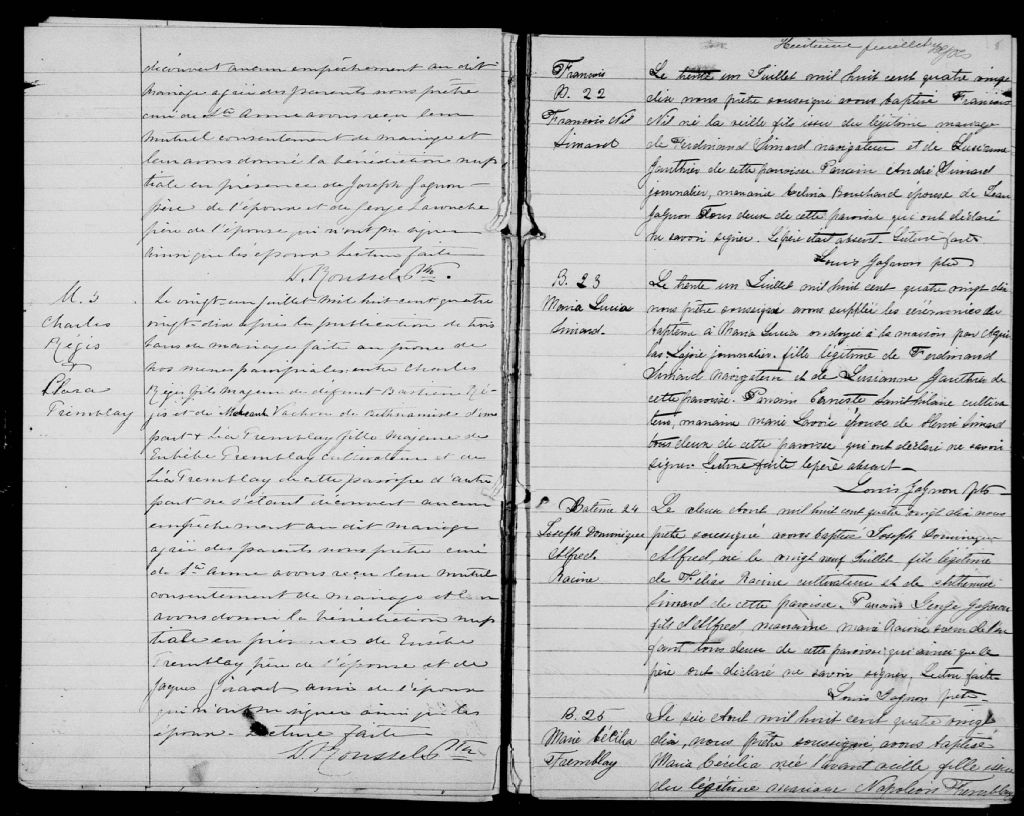 découvert aucun empêchement au dit
mariage agréé des parents nous prêtre
curé de Ste Anne avons reçu leur
mutuel consentement de mariage et
leur avons donné la bénédiction nup
tiale en présence de Joseph Gagnon
père de l'épouse et de George Lavouche
père de l'épouse qui n'ont pu signer
ainsi que les époux Lecture faite
D. Roussel Ptre.
M. 3
Charles
Régis
&
Tremblay
Le vingt-un juillet mil huit cent quatre
vingt-dix après la publication de trois
bans de mariage faite au prône de
nos messes paroissiales entre Charles
Régis fils majeur de défunt Bastien Ré
gis et de Vachon de d'une
part & Léa Tremblay fille majeure de
Eusèbe Tremblay cultivateur et de
Léa Tremblay de cette paroisse d'autre
part ne s'étant découvert aucun
empêchement au dit mariage
agréé des parents nous prêtre curé
de Ste Anne avons reçu leur mutuel
consentement de mariage et leur
avons donné la bénédiction nup
tiale en présence de Eusèbe
Tremblay père de l'épouse et de
Jacques Girard ami de l'époux
qui n'ont pu signer ainsi que les
époux. Lecture faite
D. Roussel Ptre
Huitième feuillet
Francois
B. 22
Francois Nil
Simard
Le trente un Juillet mil huit cent quatre vingt
dix nous prêtre soussigné avons baptisé Francois
Nil né la veille fils issu du légitime mariage
de Ferdinand Simard navigateur et de Lusienne
Gauthier de cette paroisse. Parrain André Simard
journalier, marraine Célina Bouchard épouse de Jean
Gagnon Tous deux de cette paroisse qui ont déclaré
ne savoir signer. Le père était absent. Lecture faite
Louis Gagnon ptre
B. 23
Maria Lucia
Simard.
Le trente un Juillet mil huit cent quatre vingt dix
nous prêtre soussigné avons supplée les cérémonies du
baptême à Maria Lucia ondoyée à la maison par
Lajoie journalier. fille légitime de Ferdinand
Simard navigateur et de Lusianne Gauthier de
cette paroisse. Parrain Erneste Saint hilaire cultiva
teur, marraine marie Lavoie épouse de Henri Simard
tous deux de cette paroisse qui ont déclaré ne savoir
signer. Lecture faite le père absent —
Louis Gagnon ptre
Batême 24
Joseph Dominique
Alfred
Racine
Le deux Aout mil huit cent quatre vingt dix nous
prêtre soussigné avons baptisé Joseph Dominique
Alfred, né le vingt neuf Juillet fils légitime
de Félix Racine cultivateur et de
Simard de cette paroisse. Parrain George Gagnon
fils d'Alfred, marraine marie Racine soeur de l'en
fant tous deux de cette paroisse qui ainsi que le
père ont déclaré ne savoir signer. Lecture faite
Louis Gagnon ptre
B. 25
Marie Cécilia
Tremblay
Le six Aout mil huit cent quatre vingt
dix, nous prêtre soussigné, avons baptisé
Maria Cécilia née l'avant veille fille issue
du légitime mariage Napoléon Tremblay